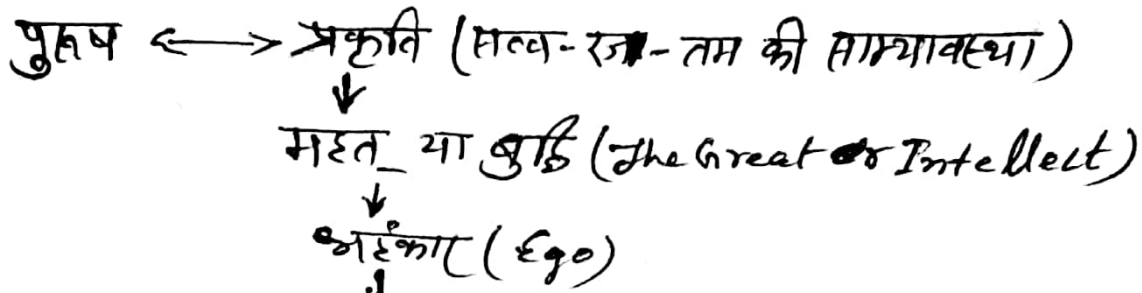 पुरूष <--> प्रकृति (सत्व - रज - तम की साम्यावस्था)
↓
महत या बुद्धि (The Great or Intellect)
↓
अहंकार (Ego)